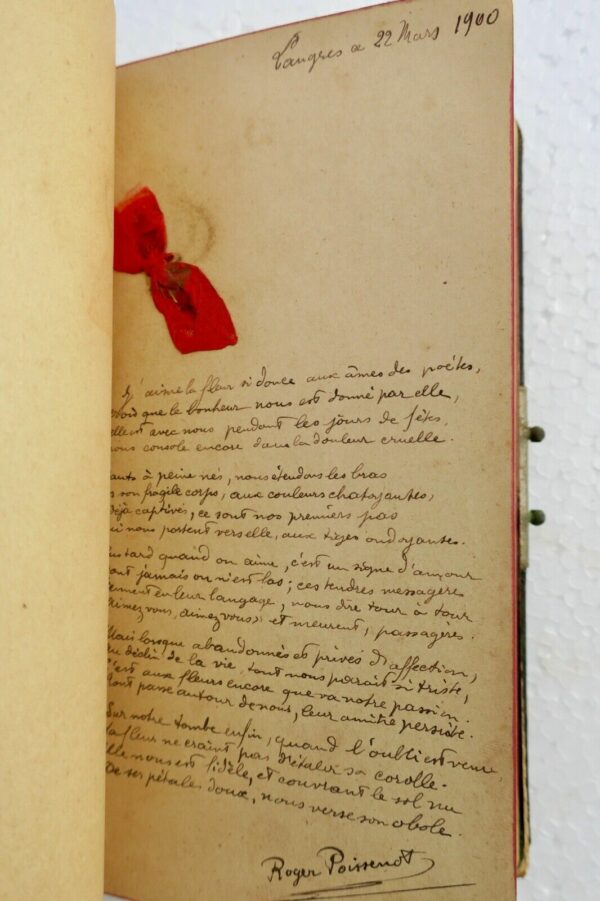 Langres le 22 Mars 1900
J'aime la fleur si douce aux âmes des poètes,
que le bonheur nous est donné par elle,
elle est avec nous pendant les jours de fêtes,
nous console encore dans la douleur cruelle.
à peine nés, nous étendons les bras
son fragile corps, aux couleurs chatoyantes,
déjà captivés, ce sont nos premiers pas
qui nous portent vers elle, aux tiges ondoyantes.
tard quand on aime, c'est un signe d'amour
dont jamais on n'est las ; ces tendres messagères
en leur langage, nous dire tour à tour
aimez vous, aimez vous » et meurent, passagères.
Mais lorsque abandonnés et privés d'affection,
au déclin de la vie, tout nous paraît si triste,
C'est aux fleurs encore que va notre passion.
tout passe autour de nous, leur amitié persiste.
Sur notre tombe enfin, quand l'oubli est venu,
la fleur ne craint pas d'étaler sa corolle.
Elle nous est fidèle, et couvrant le sol nu
De ses pétales doux, nous verse son obole.
Roger Poissenot